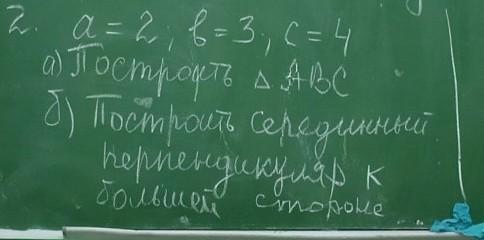 2. a = 2, в = 3, c = 4
а) Построить △ ABC
б) Построить серединный
перпендикуляр к
большей стороне